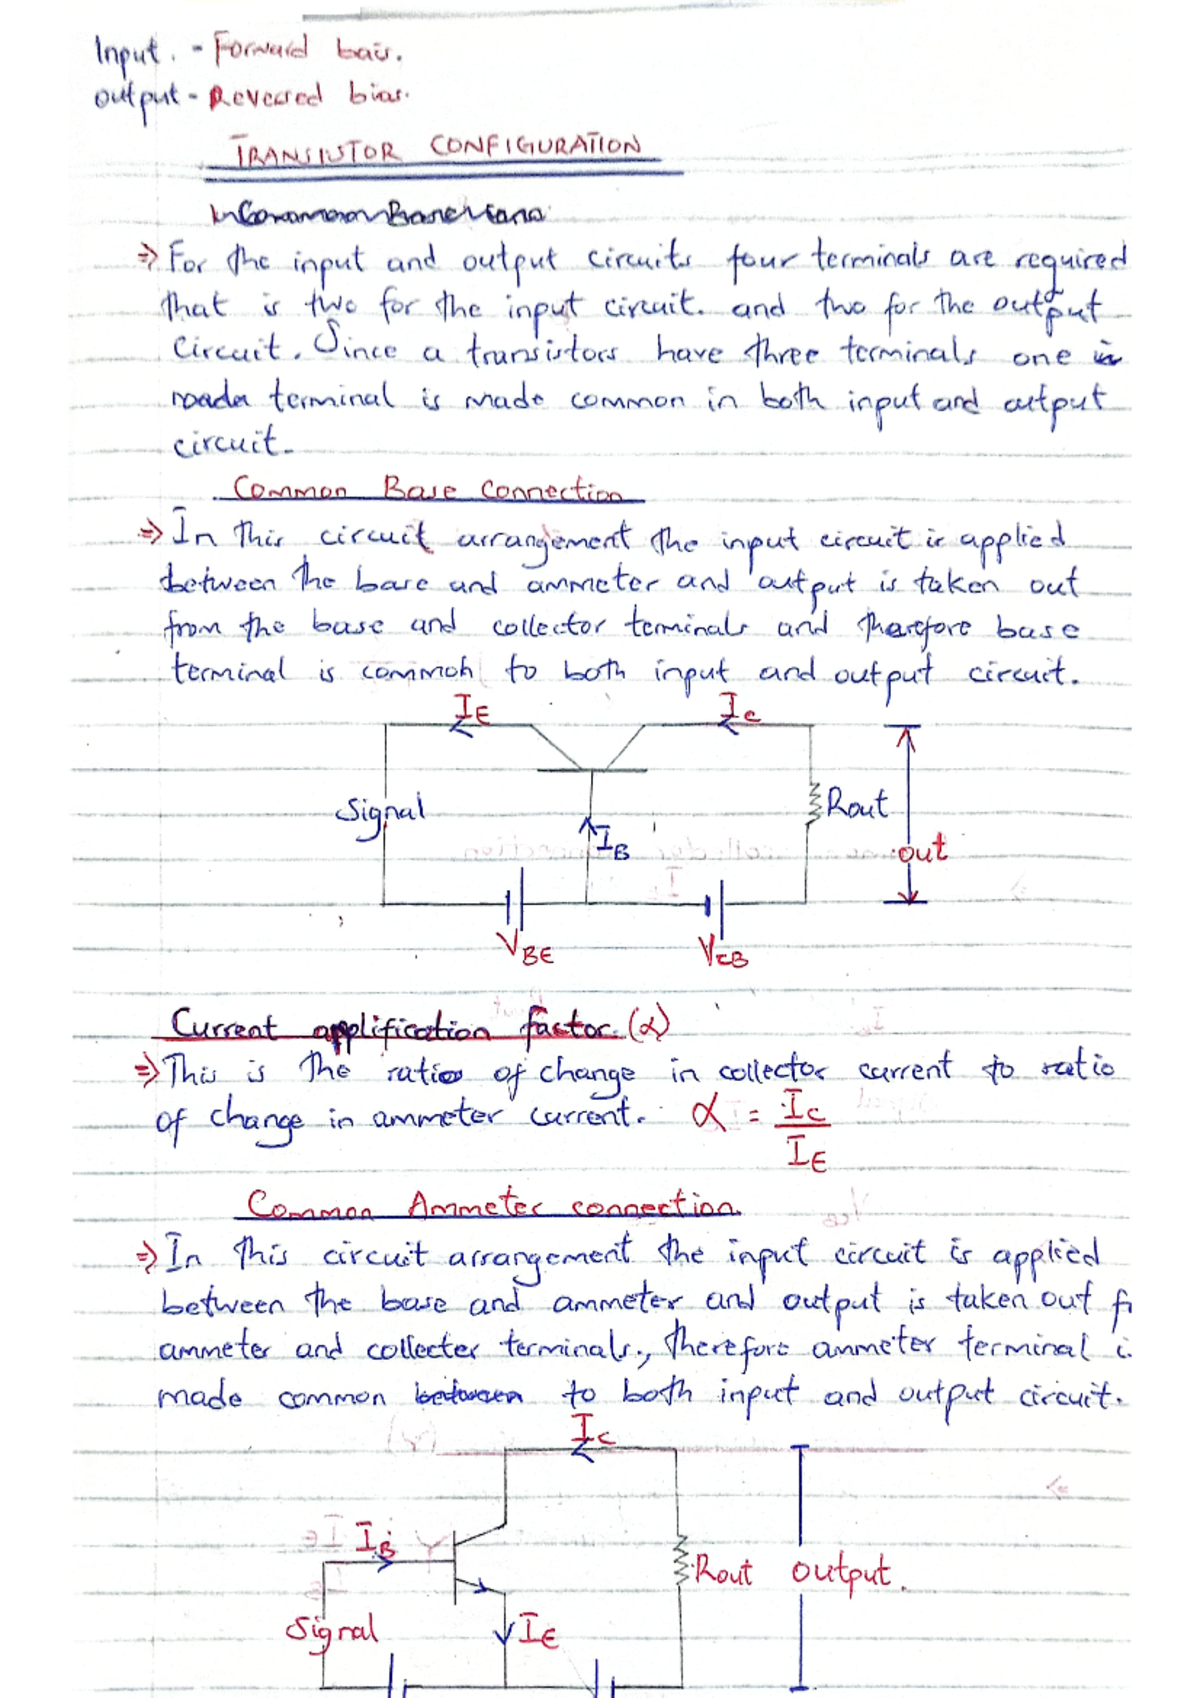 Input. - Forward bais.
output - Revesred bias.
TRANSISTOR CONFIGURATION
⇒ For the input and output circuits four terminals are required
that is two for the input circuit. and two for the output
circuit. Since a transistors have three terminals one
terminal is made common in both input and output
circuit.
Common Base Connection
⇒ In this circuit arrangement the input circuit is applied
between the base and ammeter and output is taken out
from the base and collector terminals and therefore base
terminal is common to both input and output circuit.
IE IC
Signal Rout
IB out
VBE VCB
Current applification factor. (α)
⇒ This is the ratio of change in collector current to ratio
of change in ammeter current. α = IC
IE
Common Ammeter connection.
⇒ In this circuit arrangement the input circuit is applied
between the base and ammeter and output is taken out
ammeter and collecter terminals., therefore ammeter terminal
made common between to both input and output circuit.
IC
IB
Rout output.
Signal IE